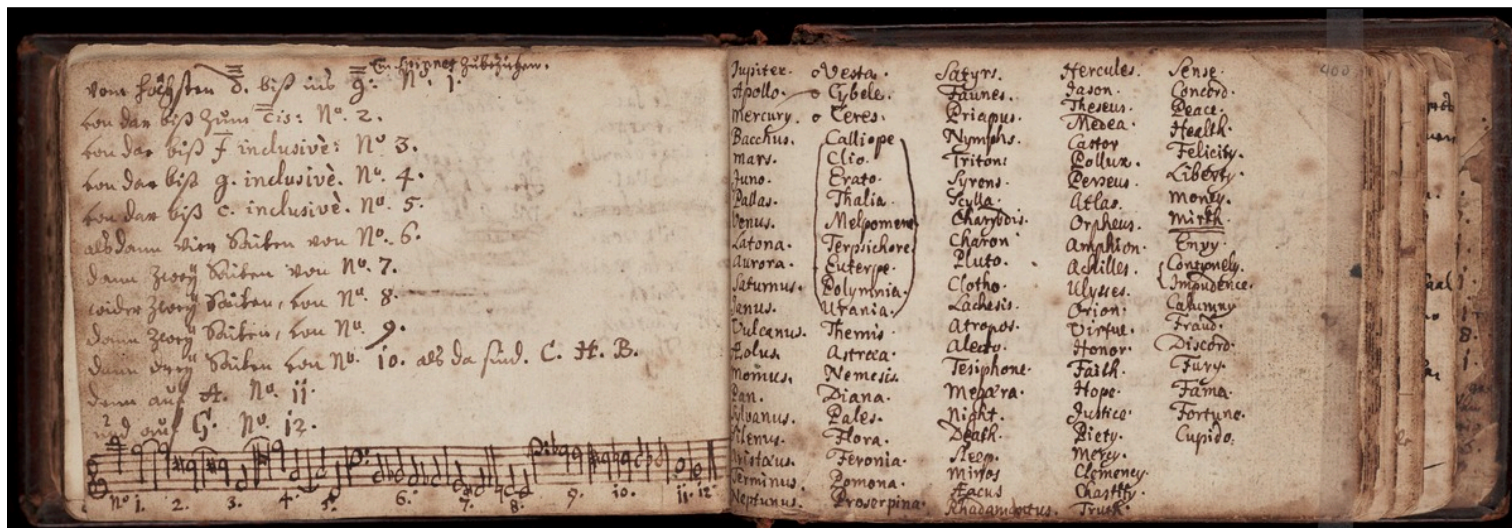 Ein Spinet Zubeziehen.
Vom höchsten d. biß ins g: No. 1.
von dar biß Zum cis: No. 2.
von dar biß f inclusivè: No 3.
von dar biß g. inclusivè. No. 4.
von dar biß c. inclusivè. No. 5.
alsdann vier Saiten von No. 6.
dann zwey Saiten von No. 7.
wider zwey Saiten, von No. 8.
dann zwey Saiten, von No. 9.
dann drey Saiten von No. 10. als da sind. C. H. B.
denn auf A. No. 11.
und auf G. No. 12.
No 1. 2. 3. 4. 5. 6. 7. 8. 9. 10. 11. 12.
Jupiter.
Apollo.
Mercury.
Bacchus.
Mars.
Juno.
Pallas.
Venus.
Latona.
Aurora.
Saturnus.
Janus.
Vulcanus.
Æolus.
Momus.
Pan.
Sylvanus.
Silenus.
Aristæus.
Terminus.
Neptunus.
Vesta.
Cybele.
Ceres.
Calliope
Clio.
Erato.
Thalia.
Melpomene
Terpsichore
Euterpe.
Polymnia.
Urania.
Themis.
Astræa.
Nemesis.
Diana.
Pales.
Flora.
Feronia.
Pomona.
Proserpina.
Satyrs.
Faunes.
Priapus.
Nymphs.
Tritons
Syrens.
Scylla.
Charybdis.
Charon
Pluto.
Clotho.
Lachesis.
Atropos.
Alecto.
Tesiphone.
Megæra.
Night.
Death.
Sleep.
Minos
Æacus
Rhadamantus.
Hercules.
Jason.
Theseus.
Medea.
Castor
Pollux.
Perseus.
Atlas.
Orpheus.
Amphion.
Achilles.
Ulysses.
Orion.
Virtue.
Honor.
Faith.
Hope.
Justice.
Piety.
Mercy.
Clemency.
Chastity.
Truth.
Sense.
Concord.
Peace.
Health.
Felicity.
Liberty.
Money.
Mirth.
Envy.
Contumely.
Impudence.
Calumny
Fraud.
Discord.
Fury.
Fama.
Fortune.
Cupido.
400